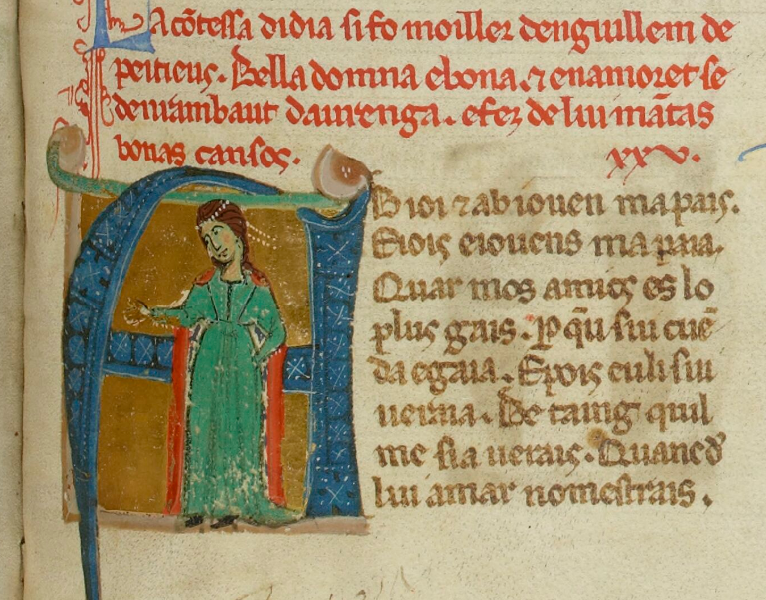 La cõtessa didia si fo moiller denguillem de
peitieus. Bella domna ebona. ⁊ enamoret se
denrambaut daurenga. efez de lui mãtas
bonas cansos. xxv.
A B ioi ⁊ ab iouen mapais.
E iois eiouens ma paia.
Quar mos amics es lo
plus gais. ꝑ q̃u sui cuẽ
da egaia. E pois eu li sui
ueraia. Be taing quil
me sia uerais. Quanc d̕
lui amar no mestrais.